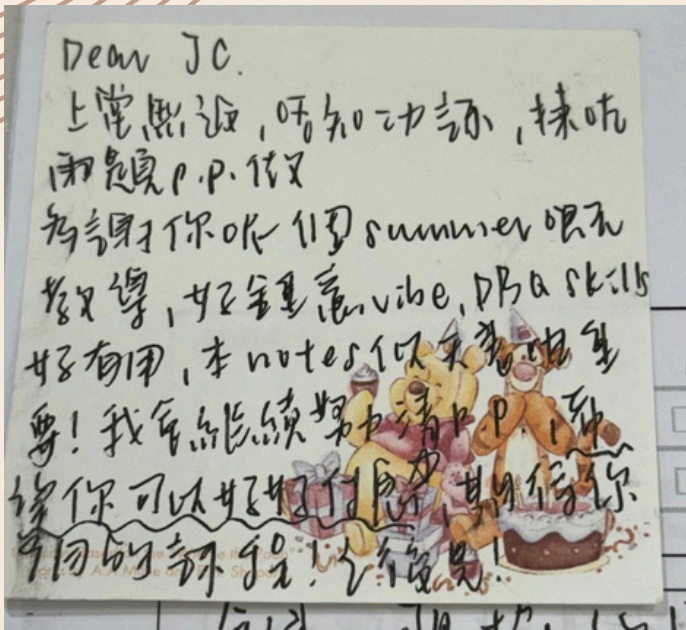 Dear JC.
上堂無返，唔知功課，揀咗
兩題p.p.做
多謝你呢個summer嘅
教導，好鍾意vibe, DBQ skills
好有用，本notes似天書咁重
要！我會繼續努力清p.p,
你可以好好休息，期待你
今回的課程！之後見！